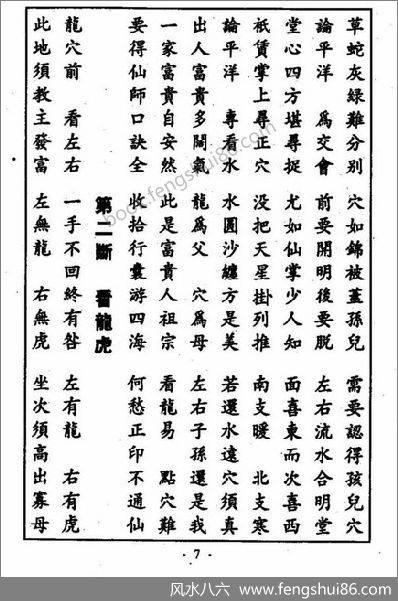 草蛇灰綠難分別 穴如錦被蓋孫兒 需要認得孩兒穴
論平洋 爲交會 前要開明後要脫 左右流水合明堂
堂心四方堪尋捉 尤如仙掌少人知 面喜東而次喜西
祇賃掌上尋正穴 没把天星掛列推 南支暖 北支寒
論平洋 專看水 水圓沙纏方是美 若還水遶穴須真
出人富貴多闊氣 龍爲父 穴爲母 左右子孫還是我
一家富貴自安然 此是富貴人祖宗 看龍易 點穴難
要得仙師口訣全 收拾行囊游四海 何愁正印不通仙
第二斷 看龍虎
龍穴前 看左右 一手不回終有咎 左有龍 右有虎
此地須教主發富 左無龍 右無虎 坐次須高出寡母
· 7 ·
book.fengshui86.com
风水八六 - www.fengshui86.com